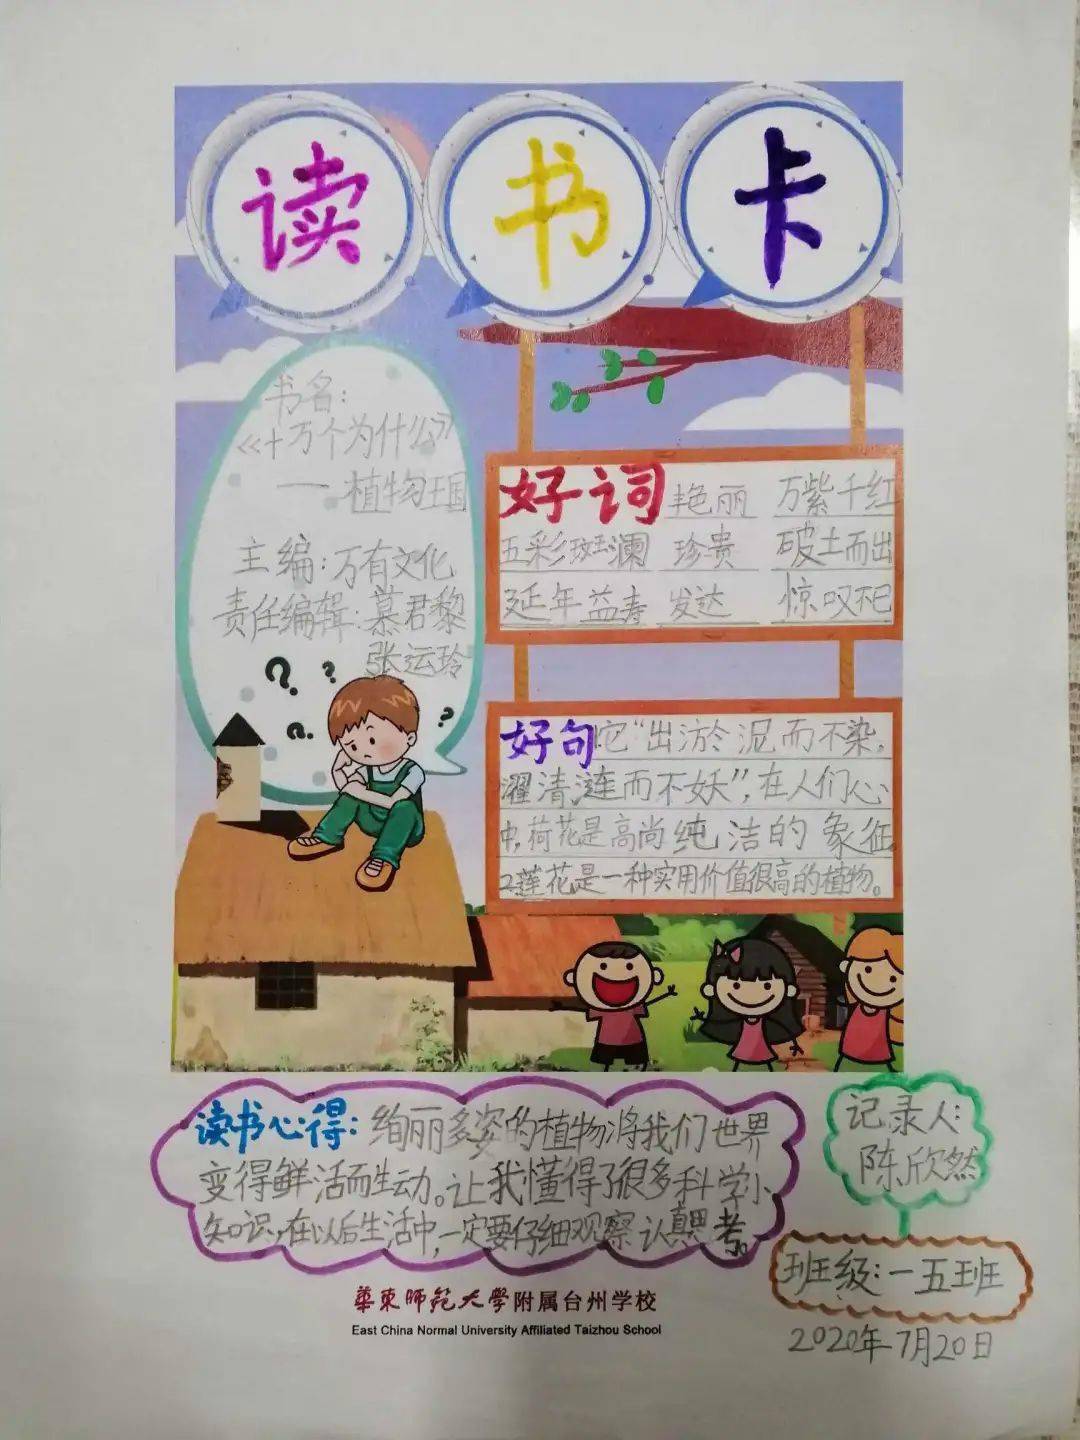 读书卡
书名：
《十万个为什么》
——植物王国
主编：万有文化
责任编辑：慕君黎
张运玲
好词 艳丽 万紫千红
五彩斑澜 珍贵 破土而出
延年益寿 发达 惊叹不已
好句 它“出淤泥而不染，
濯清涟而不妖”，在人们心
中，荷花是高尚纯洁的象征
2莲花是一种实用价值很高的植物。
读书心得：绚丽多姿的植物将我们世界
变得鲜活而生动。让我懂得了很多科学小
知识，在以后生活中，一定要仔细观察认真思考。
记录人：
陈欣然
班级：一五班
2020年7月20日
華東師範大學附属台州学校
East China Normal University Affiliated Taizhou School